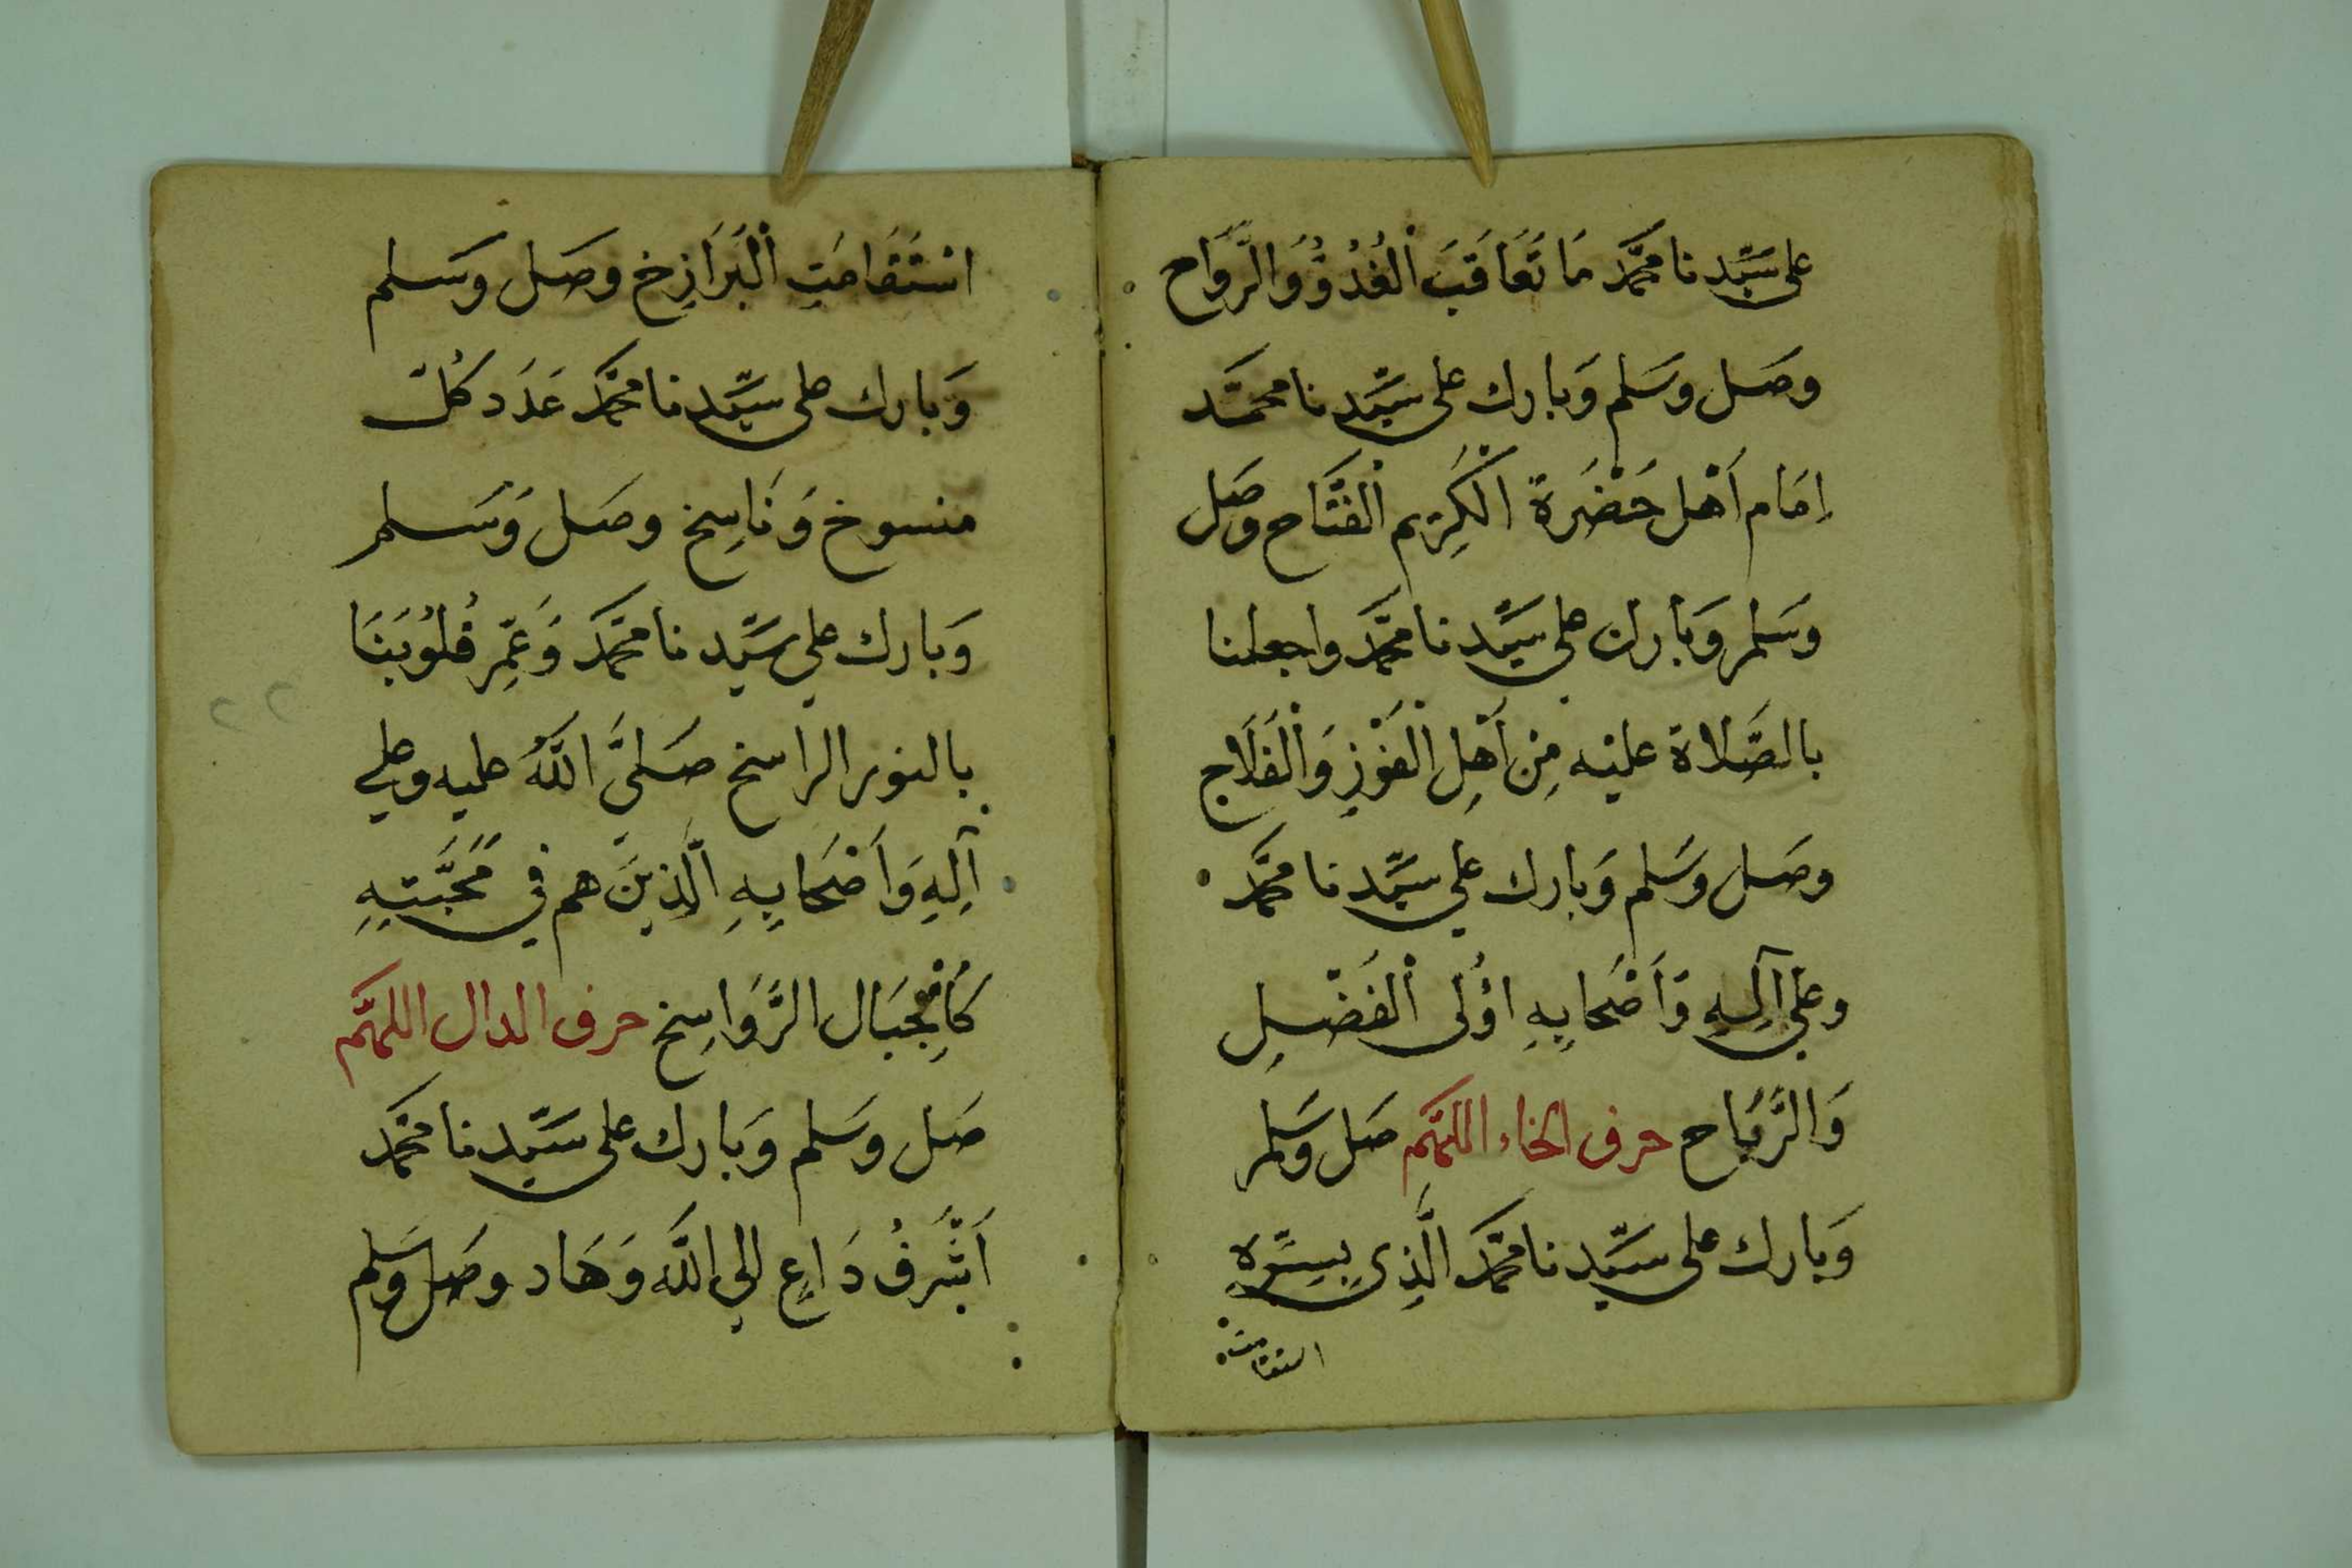 على سَيِّدنا محمَّد مَا تَعَاقَبَ الْغُدُوُّ وَالرَّوَاح
وصَل وسَلم وَبارك على سَيِّدنا محمَّد
اِمَام اَهْل حَضْرَة الْكَرِيم الْفَتَّاح وصَل
وَسَلم وَبارك على سَيِّدنا محمَّد واجعلنا
بالصَّلاة عليْه مِن اَهِلِ الْفَوْزِ وَالْفَلَاح
وصَل وسَلم وَبارك على سَيِّدنا محمَّد
وعَلى آلِهِ وَاَصْحَابِهِ اوُلى الْفَضْلِ
وَالرَّبَاح حرف الخاء اللهمَّ صَل وسَلم
وَبارك على سَيِّدنا محمَّد الَّذِى بِسِرِّهِ
استقامت
اسْتَقَامَتِ الْبَرَازِخ وصَل وسَلم
وَبارك على سَيِّدنا محمَّد عَدَد كُلّ
منسوخ وَنَاسِخ وصَل وَسَلم
وَبارك على سَيِّدنا محمَّد وَعَمِّر قُلُوبَنَا
بالنور الراسخ صَلىَّ اللَّهُ عليه وعلى
آلِهِ وَاَصْحَابِهِ الَّذِينَ هم فى مَحَبَّتِهِ
كَالْجِبَال الرَّوَاسِخ حرف الدال اللهمَّ
صَل وسَلم وَبارك على سَيِّدنا محمَّد
اَشْرَفُ دَاعٍ الى اللَّه وَهَاد وصَل وسَلم
٢٢